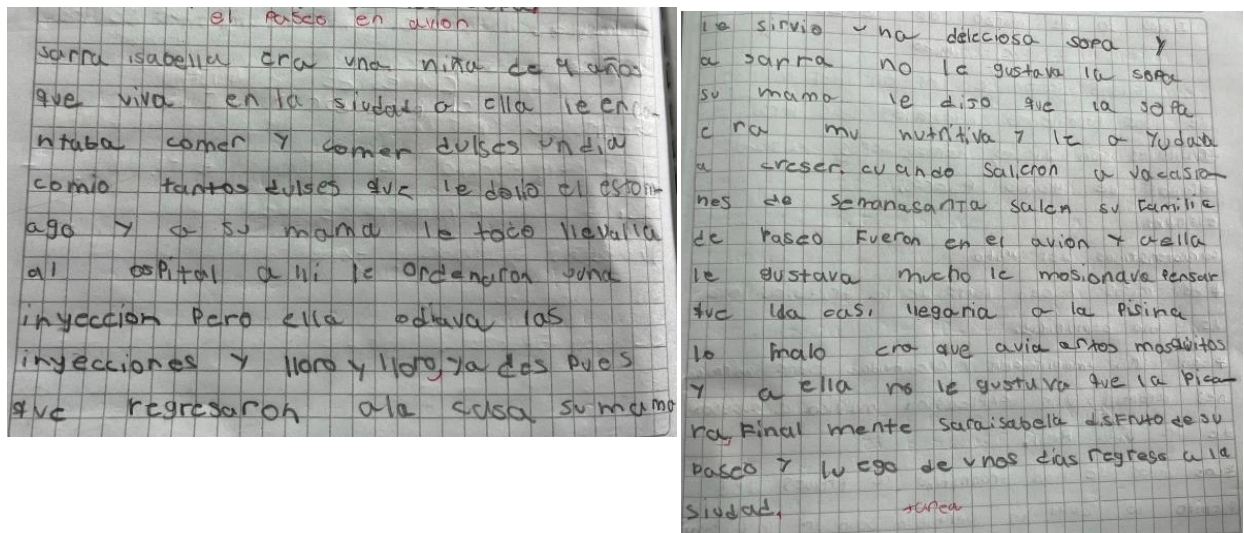 el paseo en avion
sarra isabella era una niña de 9 años
que viva en la siudad a ella le enca-
ntaba comer y comer dulses un dia
comio tantos dulses que le dolio el estom-
ago y a su mama le toco llevalla
al ospital a lli le ordenaron una
inyeccion pero ella odiava las
inyecciones y lloro y lloro ya des pues
que regresaron ala casa su mama
le sirvio una deliciosa sopa y
a sarra no le gustava la sopa
su mama le diso que la sopa
era mu nutritiva y le a yudaba
a creser, cu ando salieron a vacasio-
nes de semanasanta salen su familia
de paseo Fueron en el avion y aella
le gustava mucho le mosionava pensar
que lla casi llegaria a la pisina
lo malo era que avia antos mosquitos
y a ella no le gustava que la pica-
ra, Final mente saraisabela disFruto de su
paseo y lu ego de unos dias regreso a la
siudad.
tarea